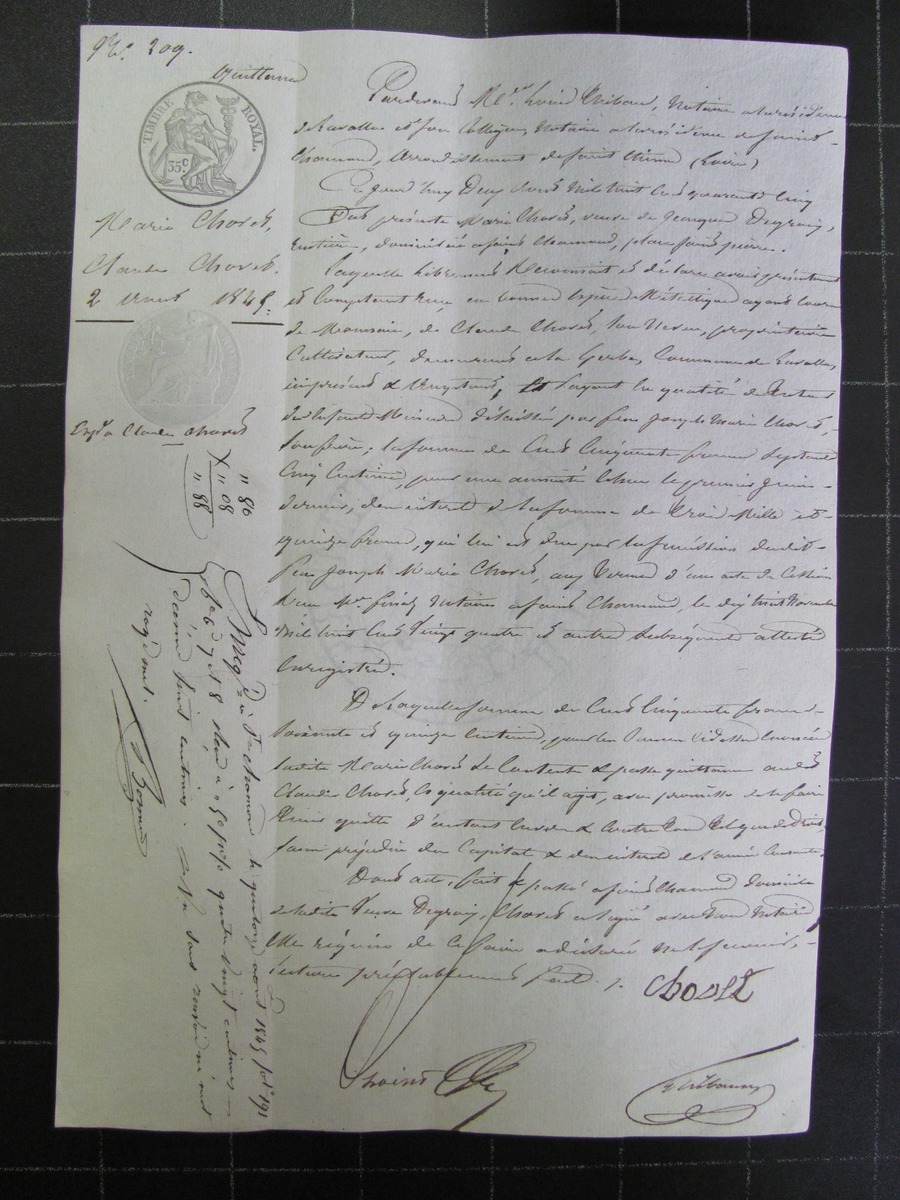 N°. 209.
Quittance
TIMBRE ROYAL.
35 c
Marie Chorel,
Claude Chorel.
2 aout 1845.
Exp. a Claude Chorel
" 80
" 08
" 88
Pardevant Me. Louis Thibaud, Notaire a la résidence
de Lavalla et son Collègue, Notaire a la résidence de Saint
Chamond, Arrondissement de Saint Etienne (Loire)
Ce jourd'huy Deux Aout Mil huit cent quarante cinq
Fut présente Marie Chorel, veuve de Jacques Degraix,
Rentière, domiciliée a Saint Chamond, place Saint pierre.
Laquelle librement Reconnait et déclare avoir présentement
et Comptant Reçu, en bonnes Espèces Métallique ayant cours
de Monnaie, de Claude Chorel, son Neveu, propriétaire
Cultivateur, demeurant a la Gerbe, Commune de Lavalla,
ici présent & acceptant, ayant la qualité de tuteur
de Mineur délaissé par feu Joseph Marie Chorel,
son frère, la somme de Cent Cinquante francs Septante
Cinq Centimes, pour une annuité échue le premier Juin
dernier, des intérêts de la somme de Trois Mille et
quinze francs, qui lui est due par la succession dudit
feu Joseph Marie Chorel, aux Termes d'un acte de Cession
Reçu Me. Notaire a Saint Chamond, le dix huit Novembre
Mil huit Cent Vingt quatre et autres subséquent
Enregistré.
De laquelle somme de Cent Cinquante francs
Soixante et quinze Centimes, pour les Causes
ladite Marie Chorel se Contente & passe quittance audit
Claude Chorel, en qualité qu'il agit, avec promesse de le faire
tenir quitte d'autant Envers & Contre Tous
sans préjudice du Capital & des intérêts de l'année Courante.
Dont acte, fait & passé a Saint Chamond domicile
de ladite Veuve Degraix, Chorel a signé avec Nous Notaires
Elle requise de le faire a déclaré ne le savoir,
lecture préalablement faite.
Chorel
Thibaud
Enreg. à St. Chamond le quatorze aout 1845 fol. 191
Reçu à 50 p % quatre vingt centimes
décime huit centimes. sans renvoi ni mot
rayé nul.